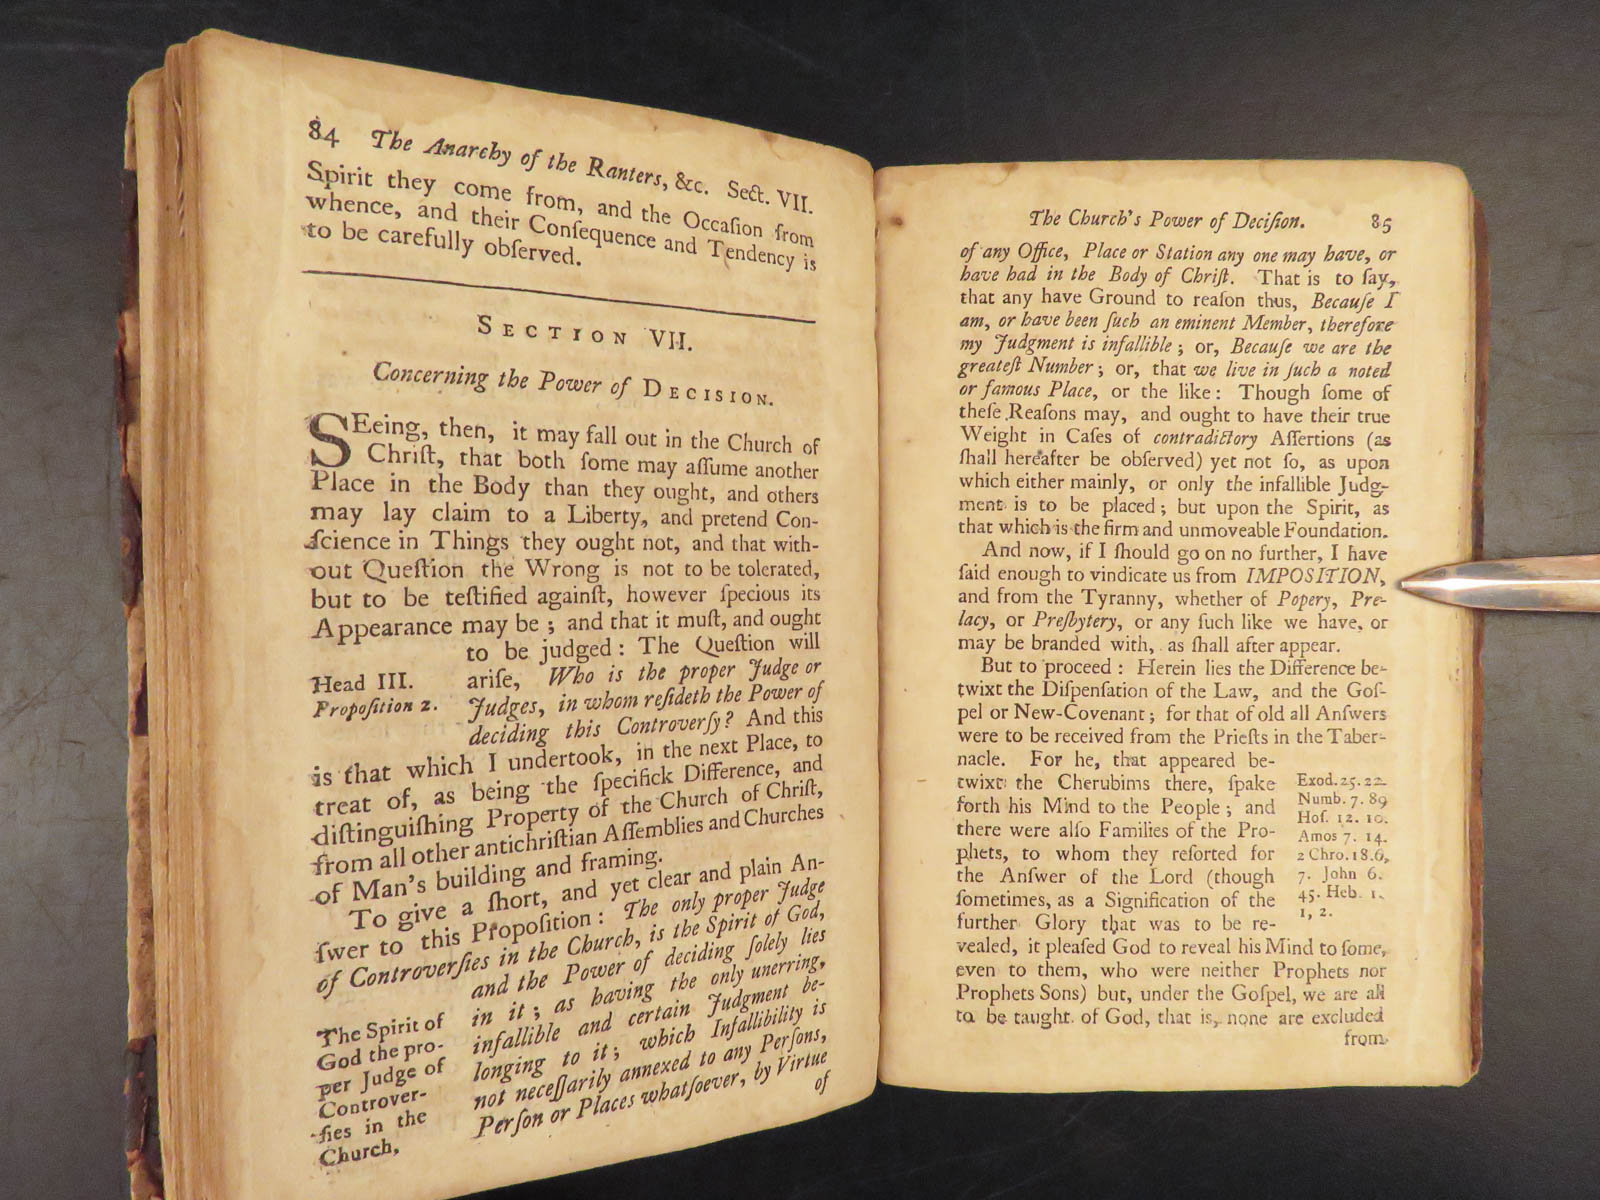 84 The Anarchy of the Ranters, &c. Sect. VII.
Spirit they come from, and the Occaſion from
whence, and their Conſequence and Tendency is
to be carefully obſerved.
SECTION VII.
Concerning the Power of DECISION.
SEeing, then, it may fall out in the Church of
Chriſt, that both ſome may aſſume another
Place in the Body than they ought, and others
may lay claim to a Liberty, and pretend Con-
ſcience in Things they ought not, and that with-
out Queſtion the Wrong is not to be tolerated,
but to be teſtified againſt, however ſpecious its
Appearance may be; and that it muſt, and ought
to be judged: The Queſtion will
Head III.
Propoſition 2.
ariſe, Who is the proper Judge or
Judges, in whom reſideth the Power of
deciding this Controverſy? And this
is that which I undertook, in the next Place, to
treat of, as being the ſpecifick Difference, and
diſtinguiſhing Property of the Church of Chriſt,
from all other antichriſtian Aſſemblies and Churches
of Man's building and framing.
To give a ſhort, and yet clear and plain An-
ſwer to this Propoſition: The only proper Judge
of Controverſies in the Church, is the Spirit of God,
and the Power of deciding ſolely lies
in it; as having the only unerring,
infallible and certain Judgment be-
longing to it; which Infallibility is
not neceſſarily annexed to any Perſons,
Perſon or Places whatſoever, by Virtue
of
The Spirit of
God the pro-
per Judge of
Controver-
ſies in the
Church,
The Church's Power of Deciſion. 85
of any Office, Place or Station any one may have, or
have had in the Body of Chriſt. That is to ſay,
that any have Ground to reaſon thus, Becauſe I
am, or have been ſuch an eminent Member, therefore
my Judgment is infallible; or, Becauſe we are the
greateſt Number; or, that we live in ſuch a noted
or famous Place, or the like: Though ſome of
theſe Reaſons may, and ought to have their true
Weight in Caſes of contradictory Aſſertions (as
ſhall hereafter be obſerved) yet not ſo, as upon
which either mainly, or only the infallible Judg-
ment is to be placed; but upon the Spirit, as
that which is the firm and unmoveable Foundation.
And now, if I ſhould go on no further, I have
ſaid enough to vindicate us from IMPOSITION,
and from the Tyranny, whether of Popery, Pre-
lacy, or Preſbytery, or any ſuch like we have, or
may be branded with, as ſhall after appear.
But to proceed: Herein lies the Difference be-
twixt the Diſpenſation of the Law, and the Goſ-
pel or New-Covenant; for that of old all Anſwers
were to be received from the Prieſts in the Taber-
nacle. For he, that appeared be-
twixt the Cherubims there, ſpake
forth his Mind to the People; and
there were alſo Families of the Pro-
phets, to whom they reſorted for
the Anſwer of the Lord (though
ſometimes, as a Signification of the
further Glory that was to be re-
Exod. 25. 22.
Numb. 7. 89
Hoſ. 12. 10.
Amos 7. 14.
2 Chro. 18. 6,
7. John 6.
45. Heb. 1.
1, 2.
vealed, it pleaſed God to reveal his Mind to ſome,
even to them, who were neither Prophets nor
Prophets Sons) but, under the Goſpel, we are all
to be taught of God, that is, none are excluded
from